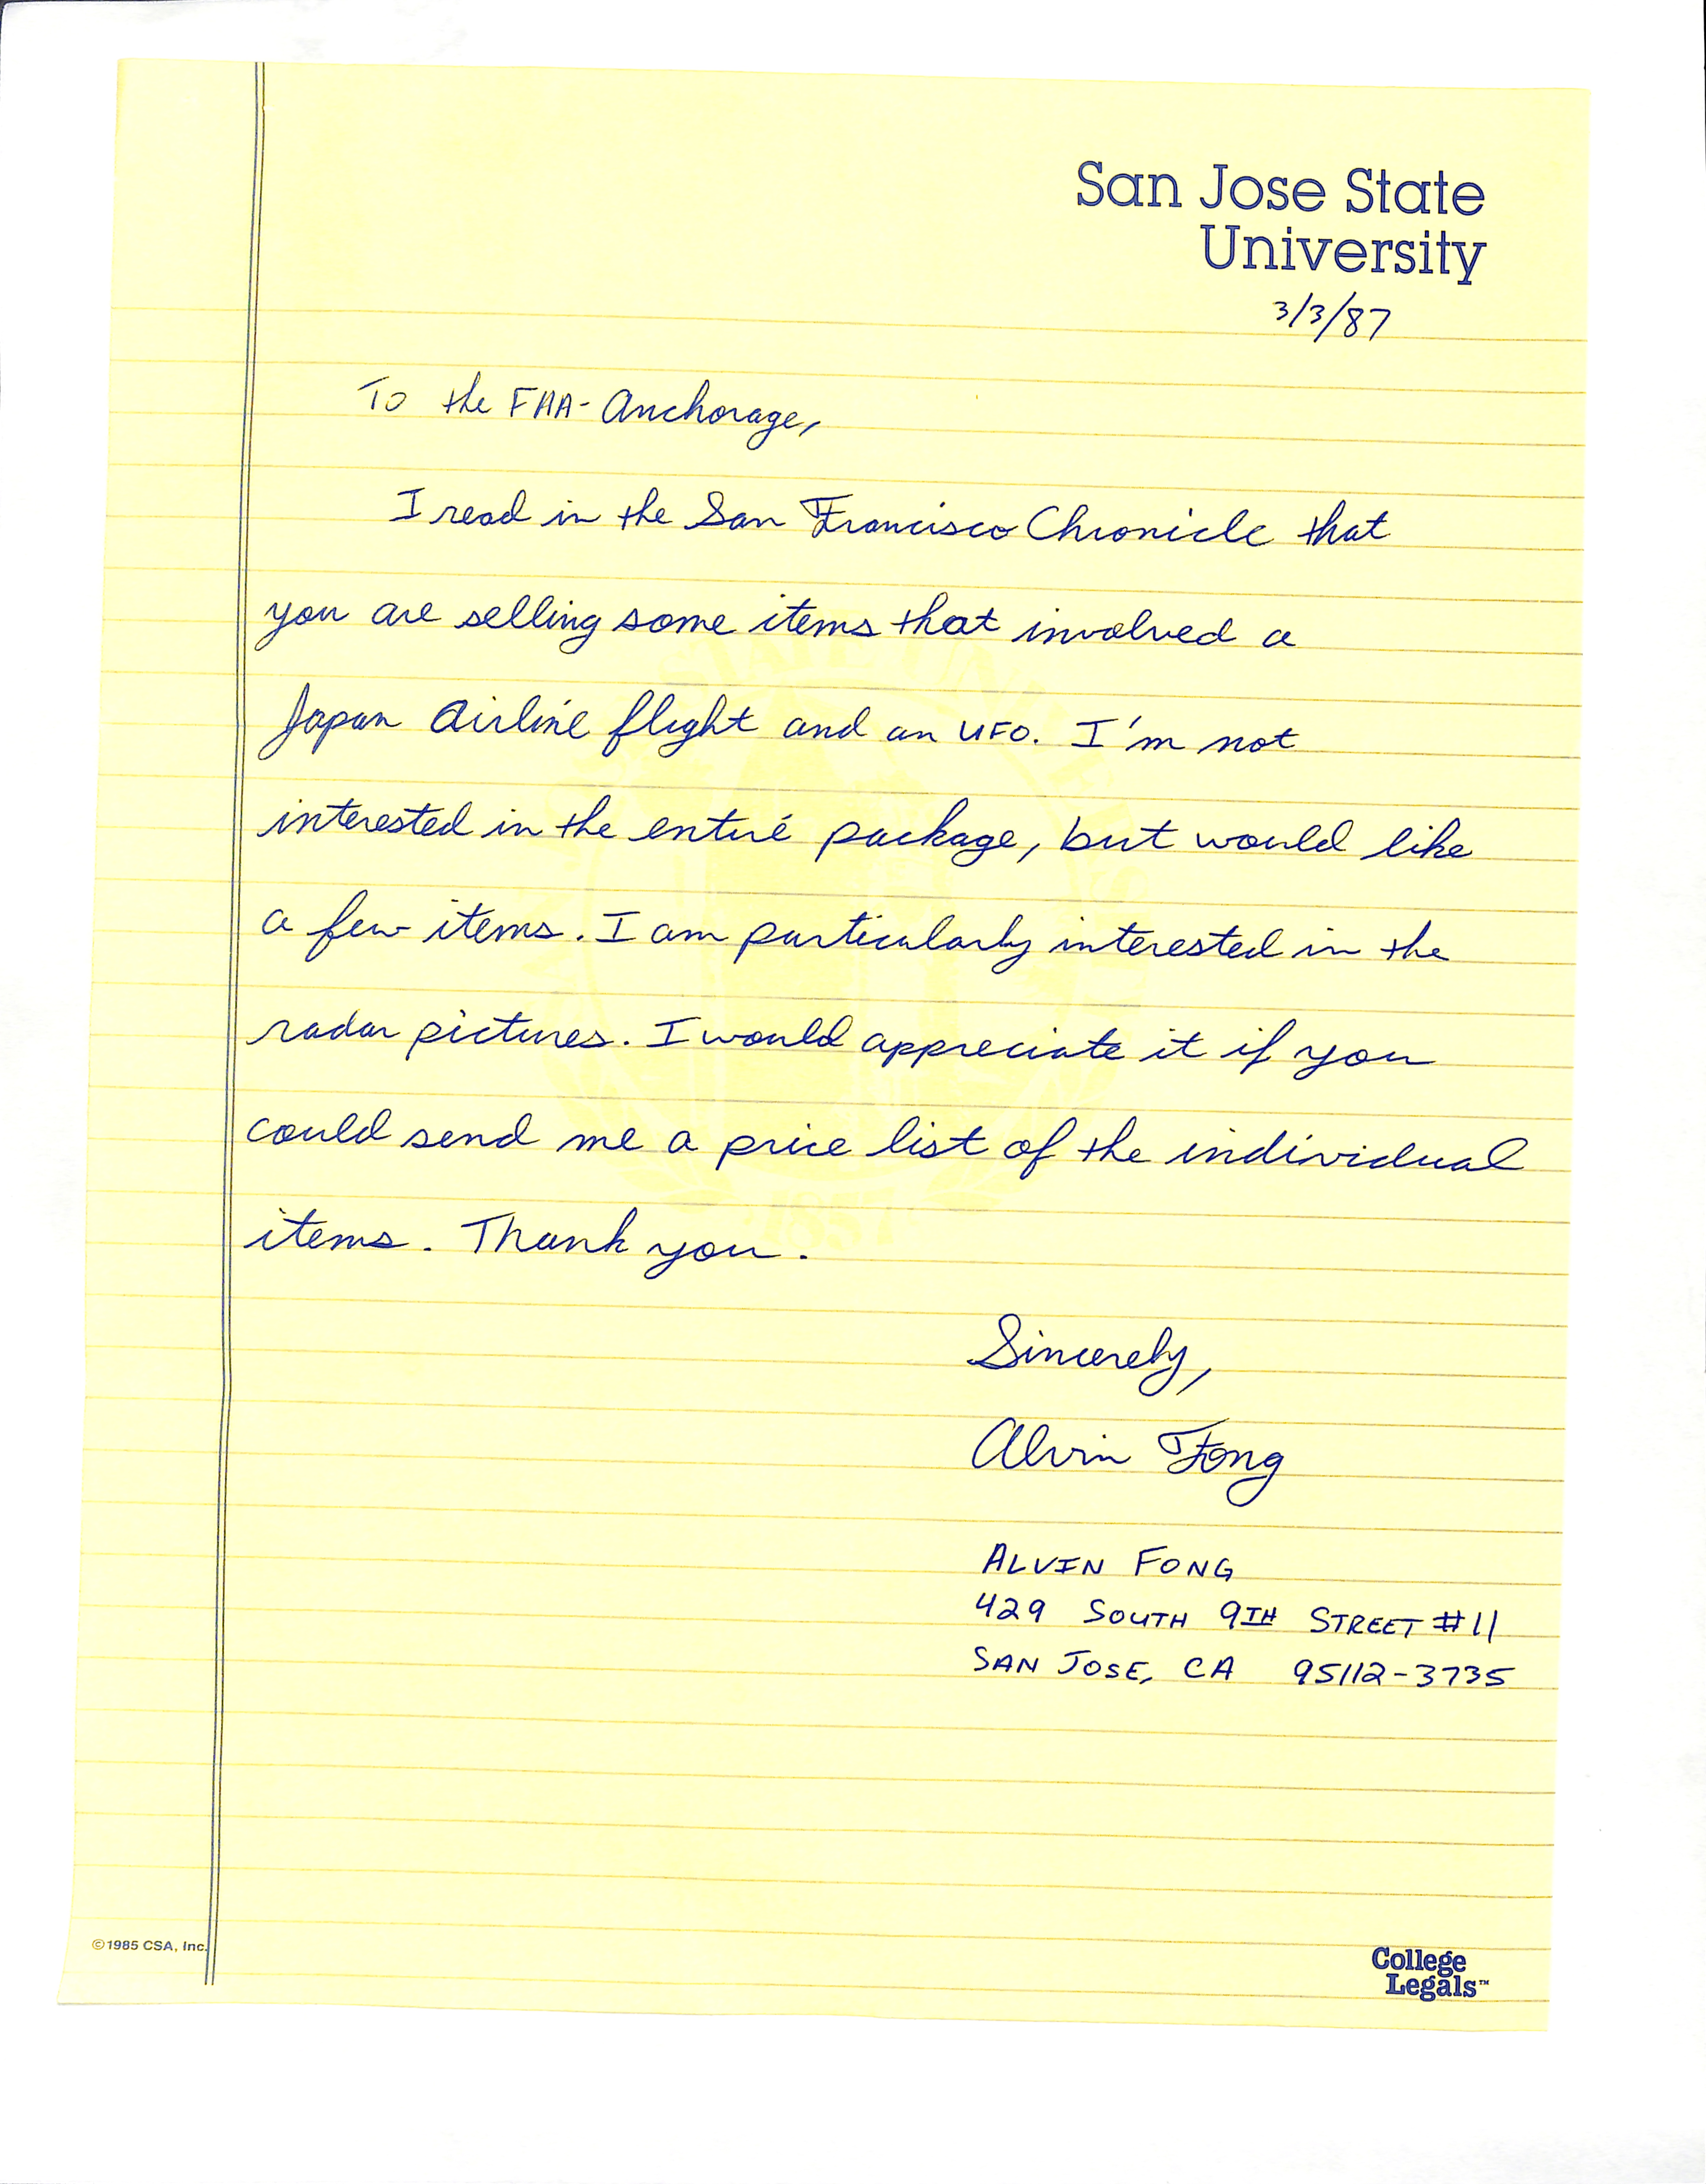 San Jose State
University
3/3/87
To the FAA- Anchorage,
I read in the San Francisco Chronicle that
you are selling some items that involved a
Japan Airline flight and an UFO. I'm not
interested in the entire package, but would like
a few items. I am particularly interested in the
radar pictures. I would appreciate it if you
could send me a price list of the individual
items. Thank you.
Sincerely,
Alvin Fong
ALVIN FONG
429 SOUTH 9TH STREET #11
SAN JOSE, CA 95112-3735
1857
©1985 CSA, Inc.
College
Legals™